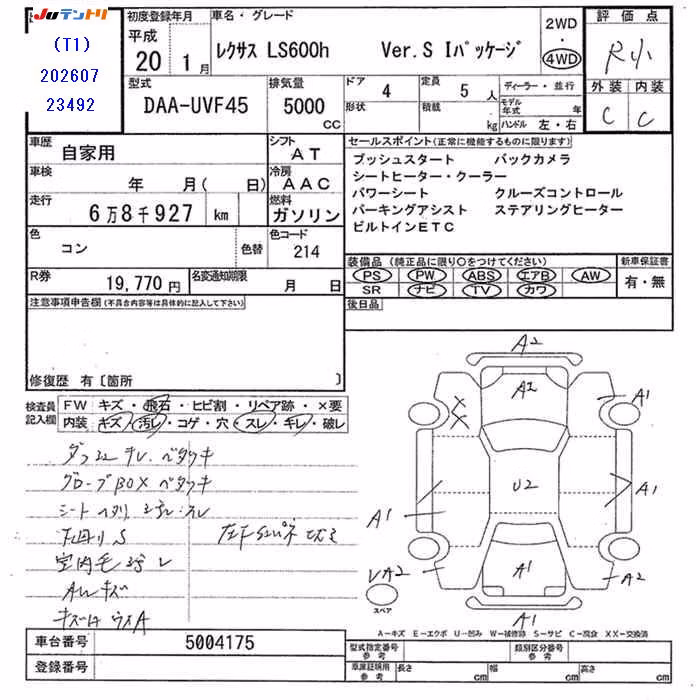 JUテントリ
(T1)
202607
23492
初度登録年月
平成
20 1月
車名・グレード
レクサス LS600h Ver.S Iパッケージ
2WD
4WD
評価点
R小
外装 内装
C C
型式
DAA-UVF45
排気量
5000
CC
ドア
4
形状
定員
5人
積載
kg
ディーラー・並行
モデル年式 年
ハンドル 左・右
車歴
自家用
シフト
AT
車検
年 月( 日)
冷房
AAC
走行
6万8千927 km
燃料
ガソリン
色
コン
色替
色コード
214
R券
19,770円
名変通知期限
月 日
セールスポイント(正常に機能するものに限ります)
プッシュスタート バックカメラ
シートヒーター・クーラー
パワーシート クルーズコントロール
パーキングアシスト ステアリングヒーター
ビルトインETC
装備品(純正品に限り○をつけてください)
PS PW ABS エアB AW
SR ナビ TV カワ
新車保証書
有・無
後日品
注意事項申告欄(不具合内容等は具体的に記入して下さい)
修復歴 有〔箇所 〕
検査員記入欄
FW キズ・飛石・ヒビ割・リペア跡・×要
内装 キズ・汚レ・コゲ・穴・スレ・キレ・破レ
グローブBOX ベタツキ
下回りS
AWキズ
A2
A2
A1
A1
U2
A1
A1
A1
A2
A2
スペア
A1
A-キズ E-エクボ U-凹み W-補修跡 S-サビ C-腐食 XX-交換済
車台番号
5004175
登録番号
型式指定番号
参考
類別区分番号
参考
車庫証明用
参考
長さ cm
幅 cm
高さ cm